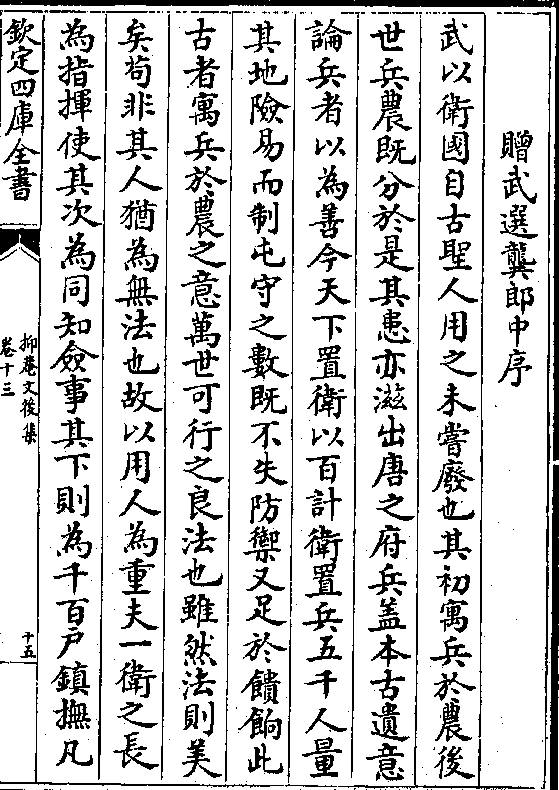 贈武選龔郎中序
武以衛國自古聖人用之未嘗廢也其初寓兵於農後
世兵農既分於是其患亦滋出唐之府兵盖本古遺意
論兵者以為善今天下置衛以百計衛置兵五千人量
其地險易而制屯守之數既不失防禦又足於饋餉此
古者寓兵於農之意萬世可行之良法也雖然法則美
矣苟非其人猶為無法也故以用人為重夫一衛之長
為指揮使其次為同知僉事其下則為千百戶鎮撫凡
欽定四庫全書
抑菴文後集
卷十三
十五